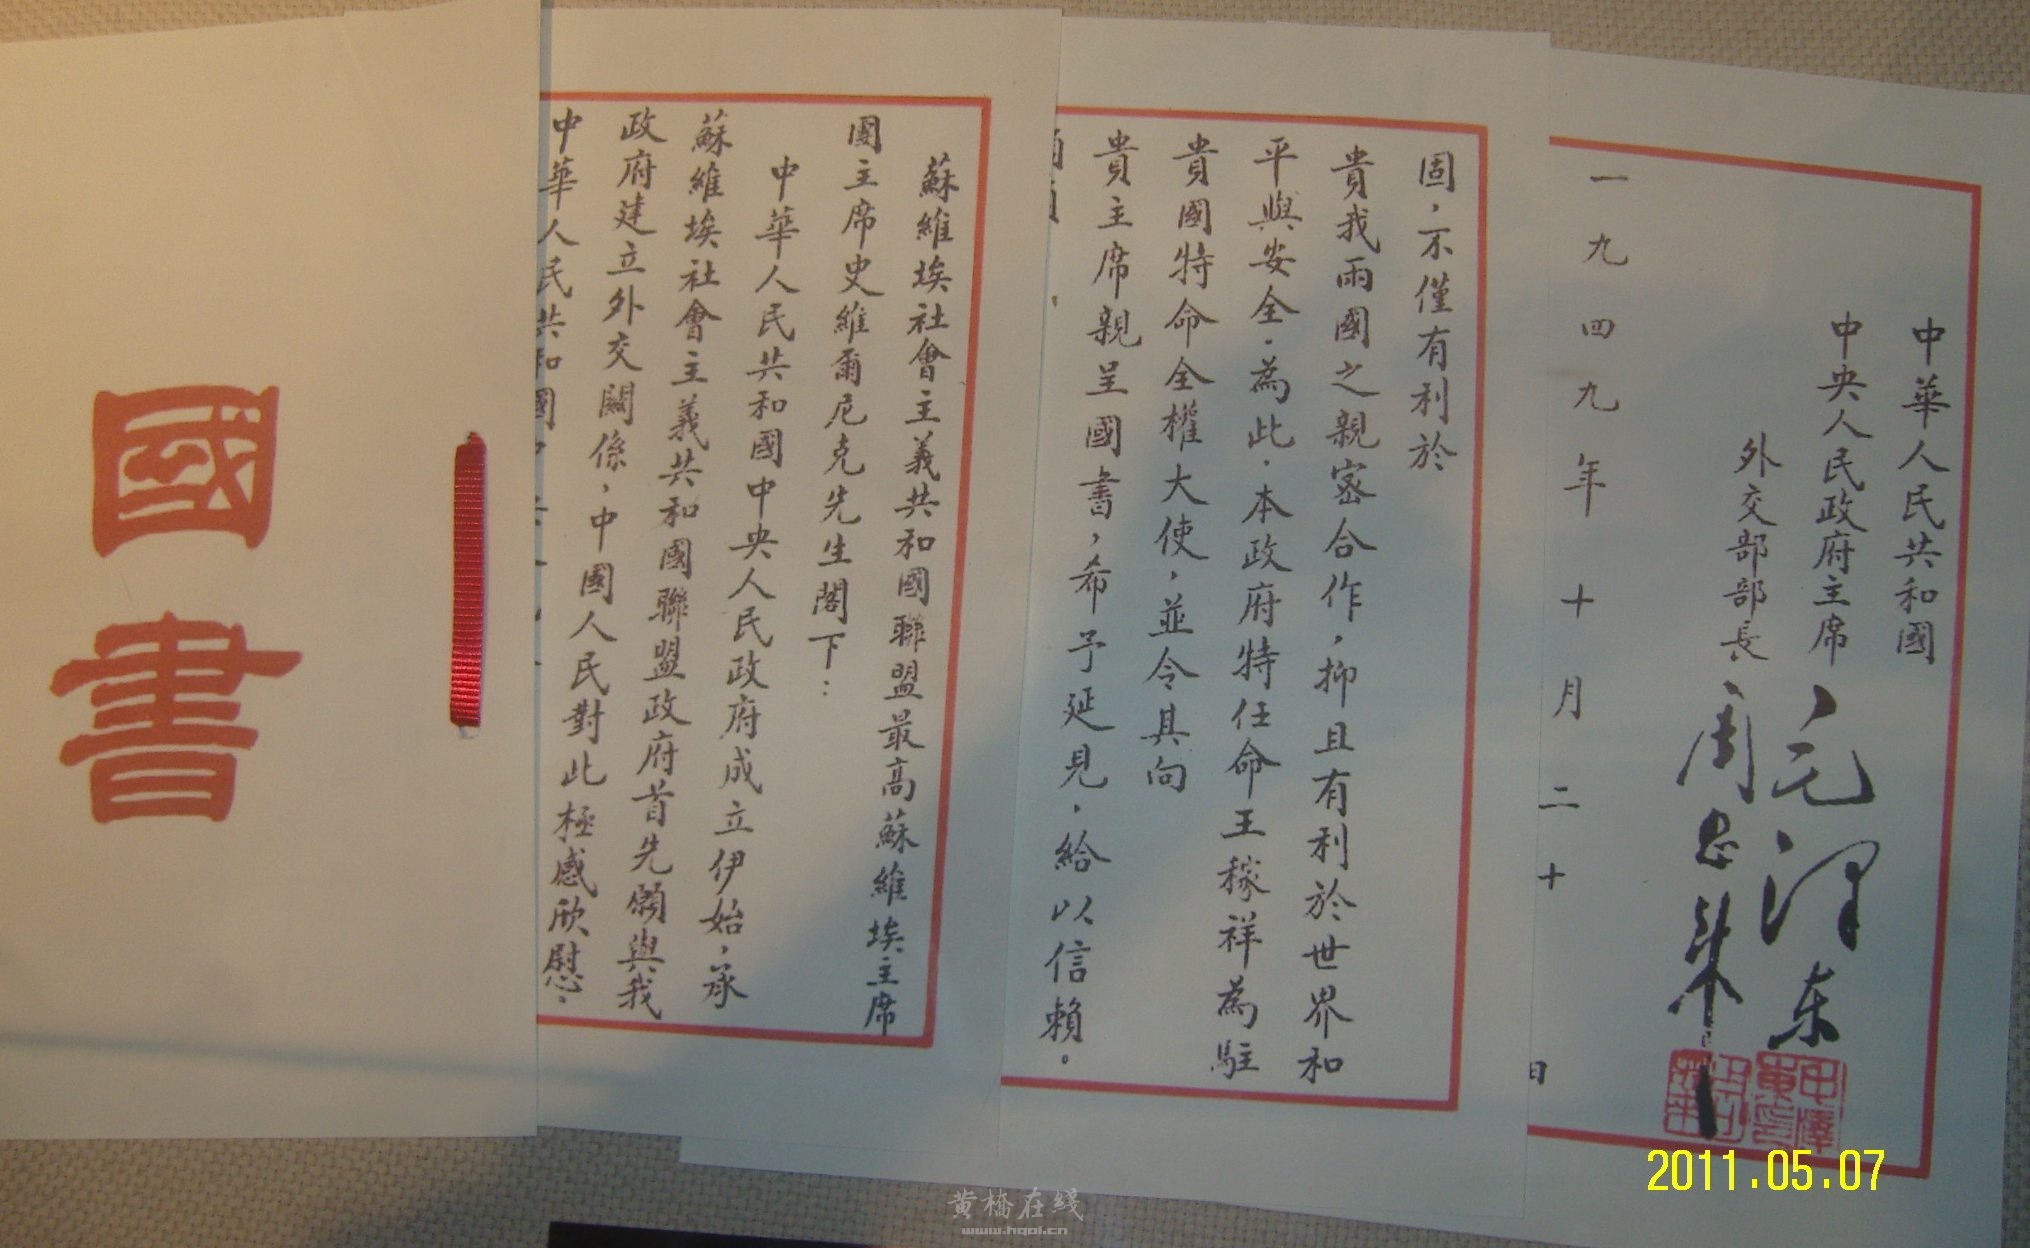 國書
蘇維埃社會主義共和國聯盟最高蘇維埃主席
團主席史維爾尼克先生閣下：
中華人民共和國中央人民政府成立伊始，承
蘇維埃社會主義共和國聯盟政府首先願與我
政府建立外交關係，中國人民對此極感欣慰．
中華人民共和國
固，不僅有利於
貴我兩國之親密合作，抑且有利於世界和
平與安全．為此．本政府特任命王稼祥為駐
貴國特命全權大使，並令其向
貴主席親呈國書，希予延見，給以信賴。
中華人民共和國
中央人民政府主席 毛澤东
外交部部長 周恩来
一九四九年十月二十 日
2011.05.07
黄桥在线
www.hqol.cn